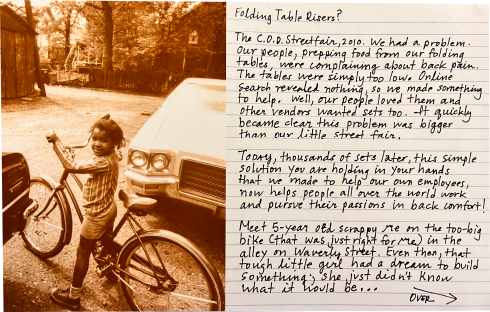 Folding Table Risers?
The C.O.D. Streetfair, 2010. We had a problem.
Our people, prepping food from our folding
tables, were complaining about back pain.
The tables were simply too low. Online
search revealed nothing, so we made something
to help. Well, our people loved them and
other vendors wanted sets too. It quickly
became clear this problem was bigger
than our little street fair.
Today, thousands of sets later, this simple
solution you are holding in your hands
that we made to help our own employees,
now helps people all over the world work
and pursue their passions in back comfort!
Meet 5-year old scrappy me on the too-big
bike (that was just right for me) in the
alley on Waverly Street. Even then, that
tough little girl had a dream to build
something; she just didn't know
what it would be...
OVER